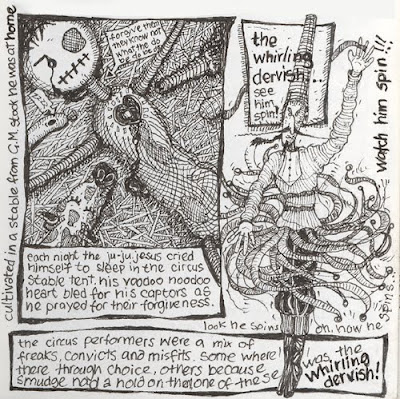 cultivated in a stable from G.M. stock he was at home
forgive them
they know not
what the do
be do be do
each night the ju-ju jesus cried
himself to sleep in the circus
stable tent. his voodoo hoodoo
heart bled for his captors as
he prayed for their forgiveness.
the
whirling
dervish...
see
him
spin!
watch him spin!!!
look he spins
oh, how he
spins...
the circus performers were a mix of
freaks, convicts and misfits. some where
there through choice, others because
smudge had a hold on them. one of these
was the
whirling
dervish!